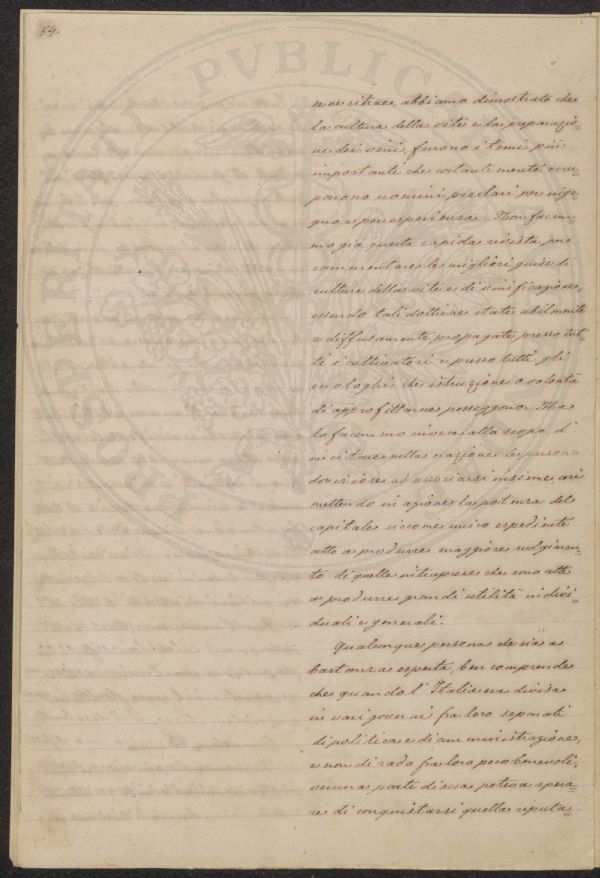 54.
se ne ritrae, abbiamo dimostrato che
la cultura della vite e la preparazio=
ne dei vini, furono i temi piú
importanti che costantemente occu=
parono uomini preclari per inge=
gno e per esperienza. Non facem=
mo gia questa rapida rivista per
rammentare le migliori guise di
cultura della vite e di vinificazione,
essendo tali dottrine state abilmente
e diffusamente propagate presso tut=
ti i coltivatori e presso tutti gli
enologhi che istruzione o volontà
di approfittarne posseggono. Ma
lo facemmo invece allo scopo d'
incitare nella nazione le persone
doviziose ad associarsi insieme, così
mettendo in azione la potenza del
capitale siccome unico espediente
atto a produrre maggiore svolgimen=
to di quelle intraprese che sono atte
a produrre grandi utilità indivi=
duali e generali.
Qualunque persona che sia a
bastanza esperta, ben comprende
che quando l'Italia era divisa
in vari governi fra loro separati
di politica e di amministrazione,
e non di rado fra loro poco benevoli,
veruna parte di essa poteva spera=
re di conquistarsi quella reputa=